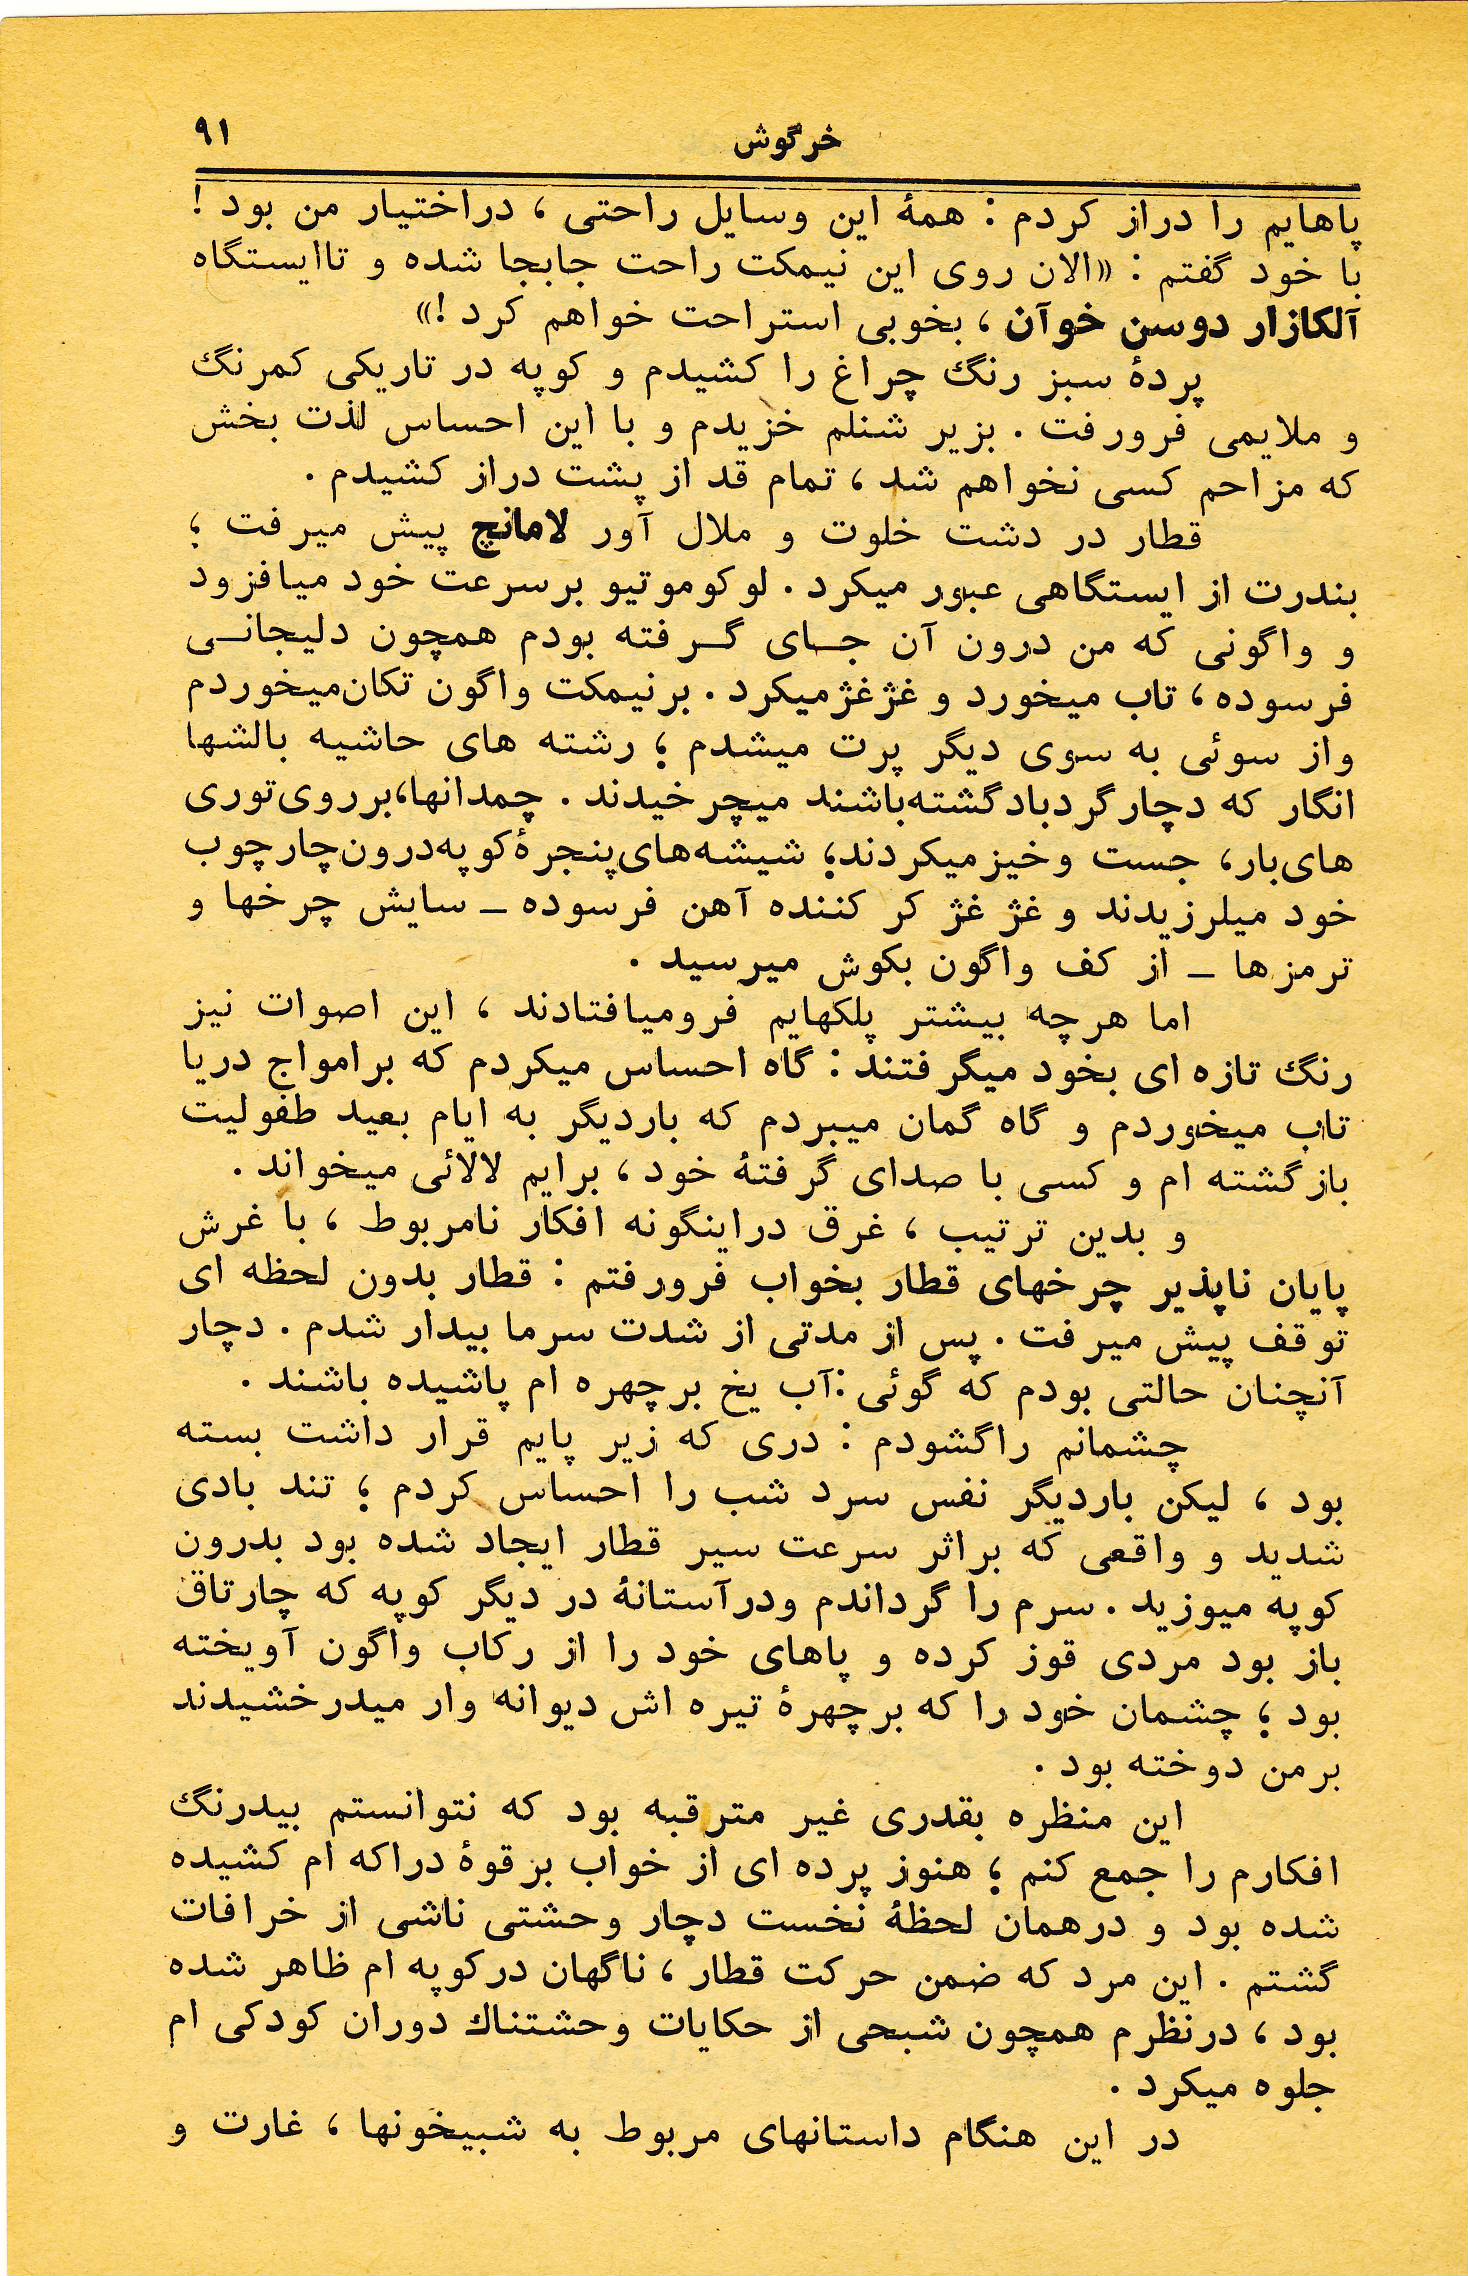 خرگوش ۹۱
پاهایم را دراز کردم : همهٔ این وسایل راحتی ، دراختیار من بود !
با خود گفتم : «الان روی این نیمکت راحت جابجا شده و تاایستگاه
آلکازار دوسن خوآن ، بخوبی استراحت خواهم کرد !»
پردهٔ سبز رنگ چراغ را کشیدم و کوپه در تاریکی کمرنگ
و ملایمی فرورفت . بزیر شنلم خزیدم و با این احساس لذت بخش
که مزاحم کسی نخواهم شد ، تمام قد از پشت دراز کشیدم .
قطار در دشت خلوت و ملال آور لامانچ پیش میرفت ؛
بندرت از ایستگاهی عبور میکرد . لوکوموتیو برسرعت خود میافزود
و واگونی که من درون آن جـای گـرفته بودم همچون دلیجانـی
فرسوده ، تاب میخورد و غژغژمیکرد . برنیمکت واگون تکان‌میخوردم
واز سوئی به سوی دیگر پرت میشدم ؛ رشته های حاشیه بالشها
انگار که دچارگردبادگشته‌باشند میچرخیدند . چمدانها،برروی‌توری
های‌بار، جست وخیزمیکردند؛ شیشه‌های‌پنجرهٔ‌کوپه‌درون‌چارچوب
خود میلرزیدند و غژ غژ کر کننده آهن فرسوده ـ سایش چرخها و
ترمزها ـ از کف واگون بکوش میرسید .
اما هرچه بیشتر پلکهایم فرومیافتادند ، این اصوات نیز
رنگ تازه ای بخود میگرفتند : گاه احساس میکردم که برامواج دریا
تاب میخوردم و گاه گمان میبردم که باردیگر به ایام بعید طفولیت
بازگشته ام و کسی با صدای گرفتهٔ خود ، برایم لالائی میخواند .
و بدین ترتیب ، غرق دراینگونه افکار نامربوط ، با غرش
پایان ناپذیر چرخهای قطار بخواب فرورفتم : قطار بدون لحظه ای
توقف پیش میرفت . پس از مدتی از شدت سرما بیدار شدم . دچار
آنچنان حالتی بودم که گوئی :آب یخ برچهره ام پاشیده باشند .
چشمانم راگشودم : دری که زیر پایم قرار داشت بسته
بود ، لیکن باردیگر نفس سرد شب را احساس کردم ؛ تند بادی
شدید و واقعی که براثر سرعت سیر قطار ایجاد شده بود بدرون
کوپه میوزید . سرم را گرداندم ودرآستانهٔ در دیگر کوپه که چارتاق
باز بود مردی قوز کرده و پاهای خود را از رکاب واگون آویخته
بود ؛ چشمان خود را که برچهرهٔ تیره اش دیوانه وار میدرخشیدند
برمن دوخته بود .
این منظره بقدری غیر مترقبه بود که نتوانستم بیدرنگ
افکارم را جمع کنم ؛ هنوز پرده ای از خواب برقوهٔ دراکه ام کشیده
شده بود و درهمان لحظهٔ نخست دچار وحشتی ناشی از خرافات
گشتم . این مرد که ضمن حرکت قطار ، ناگهان درکوپه ام ظاهر شده
بود ، درنظرم همچون شبحی از حکایات وحشتناك دوران کودکی ام
جلوه میکرد .
در این هنگام داستانهای مربوط به شبیخونها ، غارت و